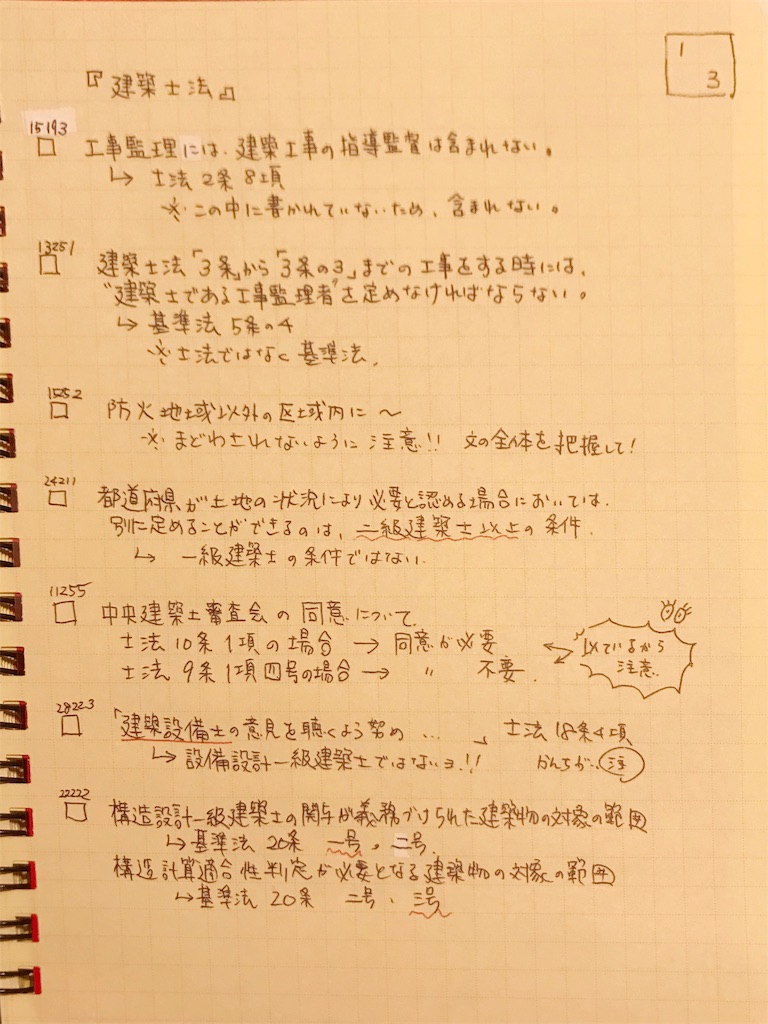 1
3
『建築士法』
15193
□ 工事監理には、建築工事の指導監督は含まれない。
↳ 士法2条8項
※この中に書かれていないため、含まれない。
13251
□ 建築士法「3条」から「3条の3」までの工事をする時には、
"建築士である工事監理者"を定めなければならない。
↳ 基準法5条の4
※士法ではなく基準法。
□ 防火地域以外の区域内に〜
※まどわされないように注意!! 文の全体を把握して!
24211
□ 都道府県が土地の状況により必要と認める場合においては、
別に定めることができるのは、二級建築士以上の条件。
↳ 一級建築士の条件ではない。
11255
□ 中央建築士審査会の同意について、
士法10条1項の場合 → 同意が必要
士法9条1項四号の場合 → 〃 不要.
似ているから
注意.
28223
□ 「建築設備士の意見を聴くよう努め…」 士法18条4項
↳ 設備設計一級建築士ではないヨ!! かんちがい 注
22222
□ 構造設計一級建築士の関与が義務づけられた建築物の対象の範囲
↳ 基準法20条 一号。二号.
構造計算適合性判定が必要となる建築物の対象の範囲
↳ 基準法20条 二号、三号